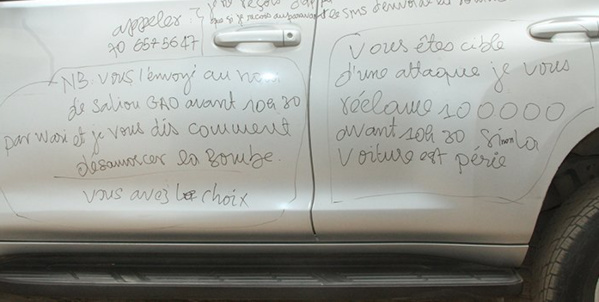 appeler :
70 657 5647
NB. vous l'envoyi au nom
de Saliou GAO avant 10h30
par Wari et je vous dis comment
désamorcer la Bombe.
vous avez le choix
les SMS
Vous êtes cible
d'une attaque je vous
réclame 100 000
avant 10h30 Sinon la
Voiture est périe